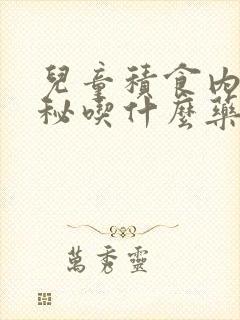 兒童積食內
秘喫什麼藥
萬秀靈